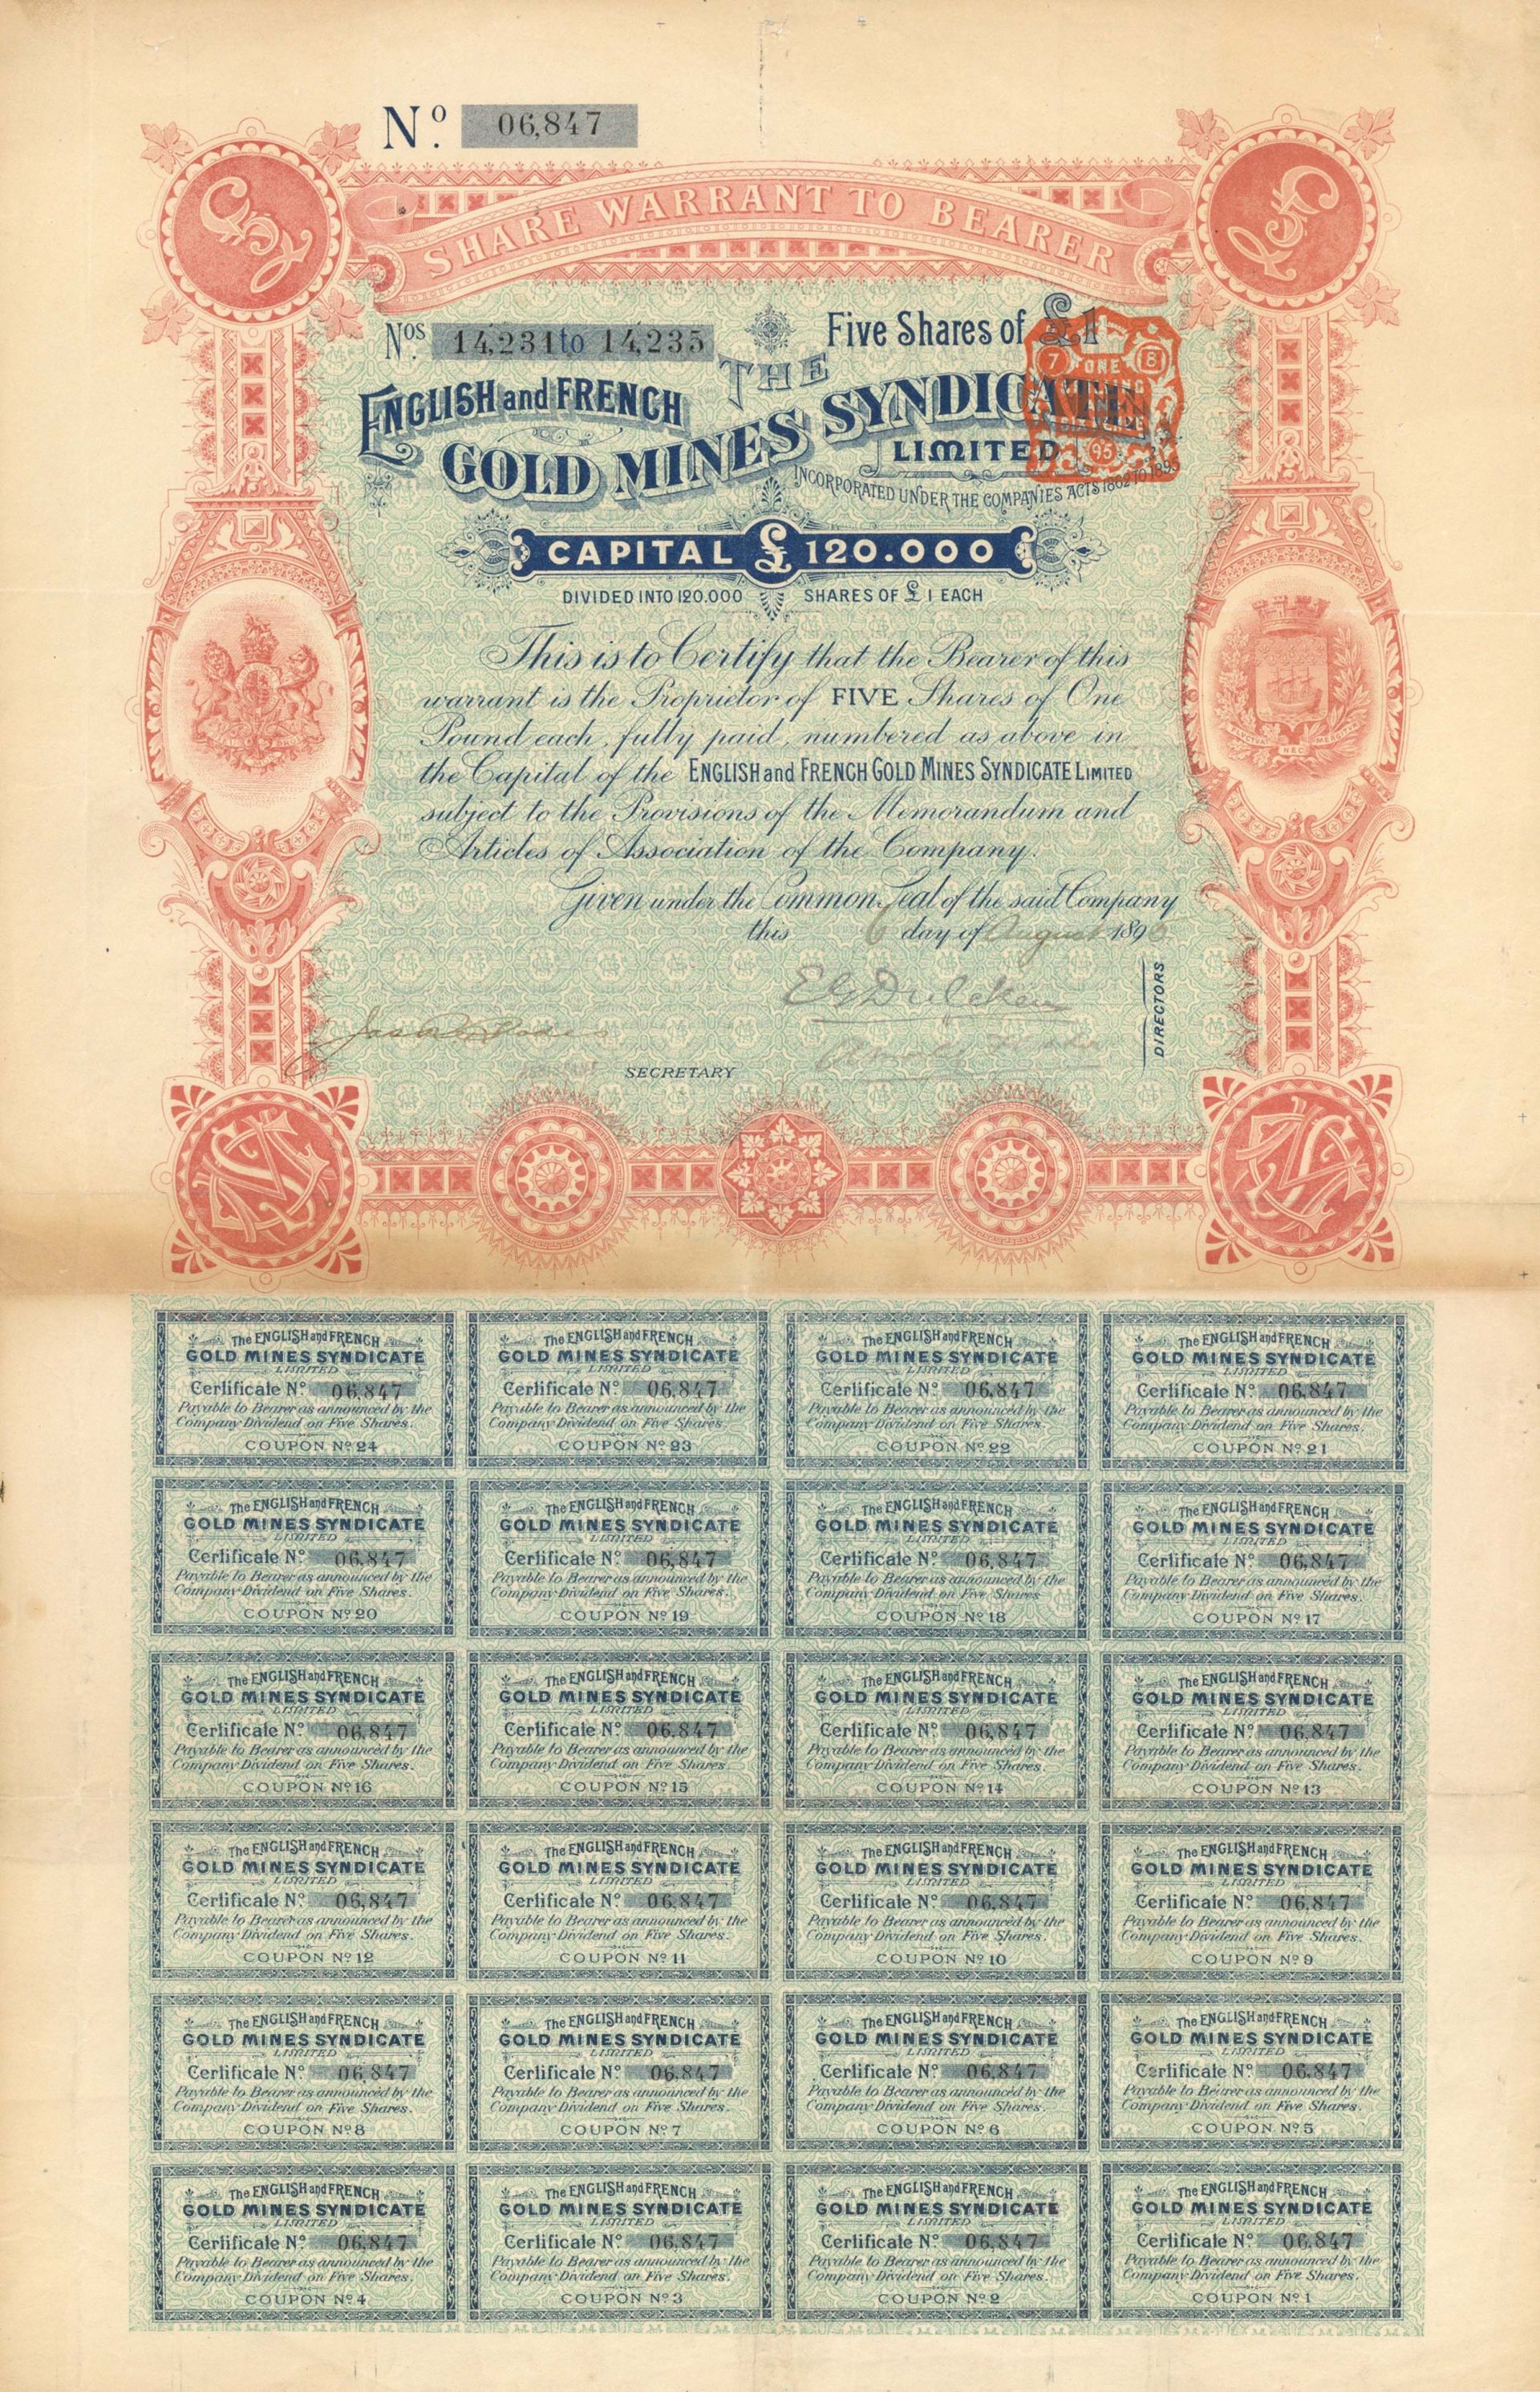 Nº. 06,847
SHARE WARRANT TO BEARER
Nos. 14,231 to 14,235
Five Shares of £1
THE
ENGLISH and FRENCH
GOLD MINES SYNDICATE
LIMITED
INCORPORATED UNDER THE COMPANIES ACTS 1862 TO 1893
7 8
ONE
SHILLING
SIX PENCE
95
CAPITAL £120.000
DIVIDED INTO 120.000 SHARES OF £1 EACH
This is to Certify that the Bearer of this
warrant is the Proprietor of FIVE Shares of One
Pound each, fully paid, numbered as above in
the Capital of the ENGLISH and FRENCH GOLD MINES SYNDICATE LIMITED
subject to the Provisions of the Memorandum and
Articles of Association of the Company.
Given under the Common Seal of the said Company
this 6 day of August 189
FLUCTUAT NEC MERGITUR
DIRECTORS
SECRETARY
The ENGLISH and FRENCH
GOLD MINES SYNDICATE
LIMITED
Certificate Nº. 06,847
Payable to Bearer as announced by the
Company Dividend on Five Shares.
COUPON Nº 24
The ENGLISH and FRENCH
GOLD MINES SYNDICATE
LIMITED
Certificate Nº. 06,847
Payable to Bearer as announced by the
Company Dividend on Five Shares.
COUPON Nº 23
The ENGLISH and FRENCH
GOLD MINES SYNDICATE
LIMITED
Certificate Nº. 06,847
Payable to Bearer as announced by the
Company Dividend on Five Shares.
COUPON Nº 22
The ENGLISH and FRENCH
GOLD MINES SYNDICATE
LIMITED
Certificate Nº. 06,847
Payable to Bearer as announced by the
Company Dividend on Five Shares.
COUPON Nº 21
The ENGLISH and FRENCH
GOLD MINES SYNDICATE
LIMITED
Certificate Nº. 06,847
Payable to Bearer as announced by the
Company Dividend on Five Shares.
COUPON Nº 20
The ENGLISH and FRENCH
GOLD MINES SYNDICATE
LIMITED
Certificate Nº. 06,847
Payable to Bearer as announced by the
Company Dividend on Five Shares.
COUPON Nº 19
The ENGLISH and FRENCH
GOLD MINES SYNDICATE
LIMITED
Certificate Nº. 06,847
Payable to Bearer as announced by the
Company Dividend on Five Shares
COUPON Nº 18
The ENGLISH and FRENCH
GOLD MINES SYNDICATE
LIMITED
Certificate Nº. 06,847
Payable to Bearer as announced by the
Company Dividend on Five Shares.
COUPON Nº 17
The ENGLISH and FRENCH
GOLD MINES SYNDICATE
LIMITED
Certificate Nº. 06,847
Payable to Bearer as announced by the
Company Dividend on Five Shares.
COUPON Nº 16
The ENGLISH and FRENCH
GOLD MINES SYNDICATE
LIMITED
Certificate Nº. 06,847
Payable to Bearer as announced by the
Company Dividend on Five Shares.
COUPON Nº 15
The ENGLISH and FRENCH
GOLD MINES SYNDICATE
LIMITED
Certificate Nº. 06,847
Payable to Bearer as announced by the
Company Dividend on Five Shares.
COUPON Nº 14
The ENGLISH and FRENCH
GOLD MINES SYNDICATE
LIMITED
Certificate Nº. 06,847
Payable to Bearer as announced by the
Company Dividend on Five Shares.
COUPON Nº 13
The ENGLISH and FRENCH
GOLD MINES SYNDICATE
LIMITED
Certificate Nº. 06,847
Payable to Bearer as announced by the
Company Dividend on Five Shares.
COUPON Nº 12
The ENGLISH and FRENCH
GOLD MINES SYNDICATE
LIMITED
Certificate Nº. 06,847
Payable to Bearer as announced by the
Company Dividend on Five Shares.
COUPON Nº 11
The ENGLISH and FRENCH
GOLD MINES SYNDICATE
LIMITED
Certificate Nº. 06,847
Payable to Bearer as announced by the
Company Dividend on Five Shares.
COUPON Nº 10
The ENGLISH and FRENCH
GOLD MINES SYNDICATE
LIMITED
Certificate Nº. 06,847
Payable to Bearer as announced by the
Company Dividend on Five Shares.
COUPON Nº 9
The ENGLISH and FRENCH
GOLD MINES SYNDICATE
LIMITED
Certificate Nº. 06,847
Payable to Bearer as announced by the
Company Dividend on Five Shares.
COUPON Nº 8
The ENGLISH and FRENCH
GOLD MINES SYNDICATE
LIMITED
Certificate Nº. 06,847
Payable to Bearer as announced by the
Company Dividend on Five Shares.
COUPON Nº 7
The ENGLISH and FRENCH
GOLD MINES SYNDICATE
LIMITED
Certificate Nº. 06,847
Payable to Bearer as announced by the
Company Dividend on Five Shares.
COUPON Nº 6
The ENGLISH and FRENCH
GOLD MINES SYNDICATE
LIMITED
Certificate Nº. 06,847
Payable to Bearer as announced by the
Company Dividend on Five Shares.
COUPON Nº 5
The ENGLISH and FRENCH
GOLD MINES SYNDICATE
LIMITED
Certificate Nº. 06,847
Payable to Bearer as announced by the
Company Dividend on Five Shares.
COUPON Nº 4
The ENGLISH and FRENCH
GOLD MINES SYNDICATE
LIMITED
Certificate Nº. 06,847
Payable to Bearer as announced by the
Company Dividend on Five Shares.
COUPON Nº 3
The ENGLISH and FRENCH
GOLD MINES SYNDICATE
LIMITED
Certificate Nº. 06,847
Payable to Bearer as announced by the
Company Dividend on Five Shares.
COUPON Nº 2
The ENGLISH and FRENCH
GOLD MINES SYNDICATE
LIMITED
Certificate Nº. 06,847
Payable to Bearer as announced by the
Company Dividend on Five Shares.
COUPON Nº 1